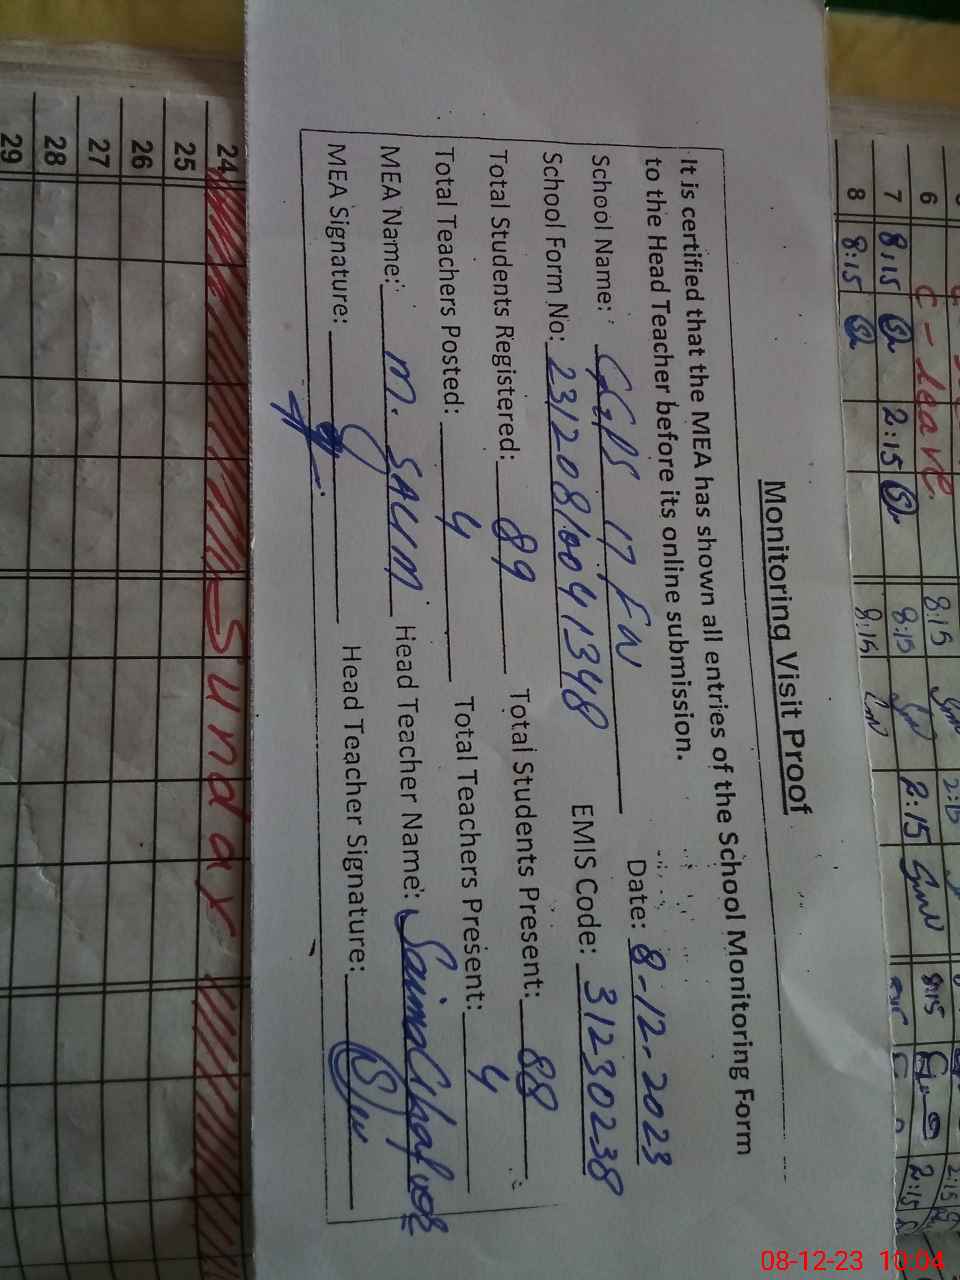 Monitoring Visit Proof
It is certified that the MEA has shown all entries of the School Monitoring Form
to the Head Teacher before its online submission.
School Name: GGPS 17 FW Date: 8-12-2023
School Form No: 23120810041348 EMIS Code: 31230238
Total Students Registered: 89 Total Students Present: 88
Total Teachers Posted: 4 Total Teachers Present: 4
MEA Name: M. SALIM Head Teacher Name: Saima
MEA Signature: Head Teacher Signature:
6 C-leave 8:15
7 8:15 2:15 8:15 2:15 8:15 2:15
8 8:15 8:15
24 Sunday
25
26
27
28
29
08-12-23 10:04